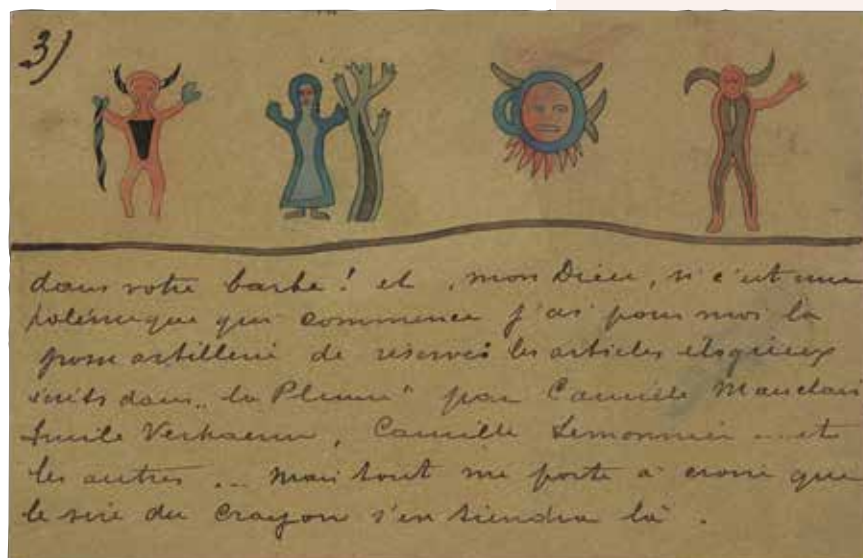 3)
dans votre barbe ! et, mon Dieu, si c'est une
polémique qui commence j'ai pour moi la
grosse artillerie de réserve : les articles élogieux
écrits dans „la Plume" par Camille Mauclair
Emile Verhaeren, Camille Lemonnier ... et
les autres ... Mais tout me porte à croire que
le sire du Crayon s'en tiendra là .